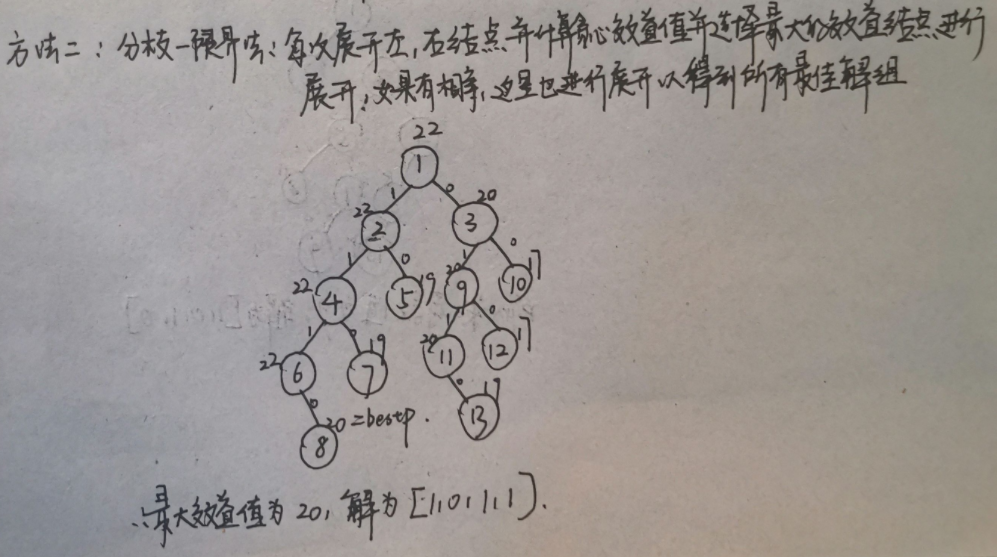 方法二：分枝一限界法：每次展开左,右结点并计算新心效益值并选择最大的效益结点进行
展开,如果有相等,这里也进行展开以得到所有最佳解组
22
1
1 0
22 20
2 3
1 0 1 0
22 19 20 17
4 5 9 10
1 0 1 0
22 19 20 17
6 7 11 12
0 0
20=bestp. 19
8 13
∴最大效益值为20,解为[1,0,1,1].